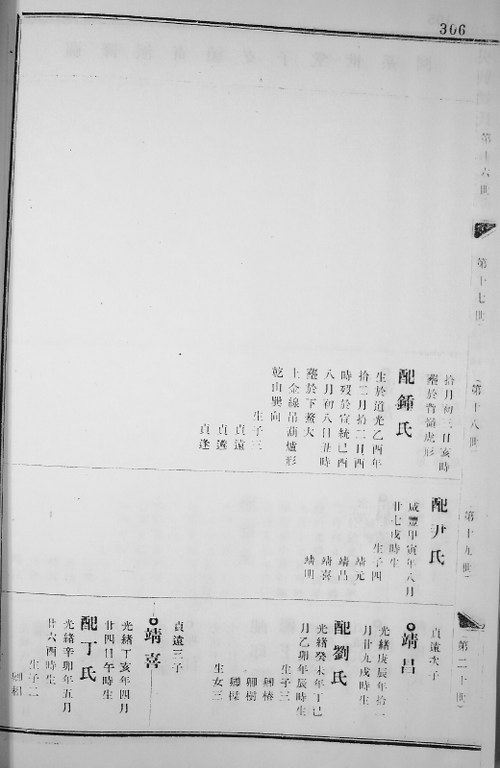 306
第十六世
第十七世
第十八世
第十九世
第二十世
拾月初三日亥時
塟於背崗虎形
配鍾氏
生於道光乙酉年
拾二月拾二日酉
時歿於宣統己酉
八月初八日丑時
塟於下塞大
上金線吊葫爐形
乾山巽向
生子三
貞遠
貞邁
貞逢
配尹氏
咸豐甲寅年八月
廿七戌時生
生子四
靖元
靖昌
靖喜
靖明
貞遠次子
靖昌
光緒庚辰年拾一
月廿九戌時生
配劉氏
光緒癸未年丁巳
月乙卯年辰時生
生子三
卿椿
卿樹
卿樑
生女三
貞遠三子
靖喜
光緒丁亥年四月
廿四日午時生
配丁氏
光緒辛卯年五月
廿六酉時生
生子二
卿相